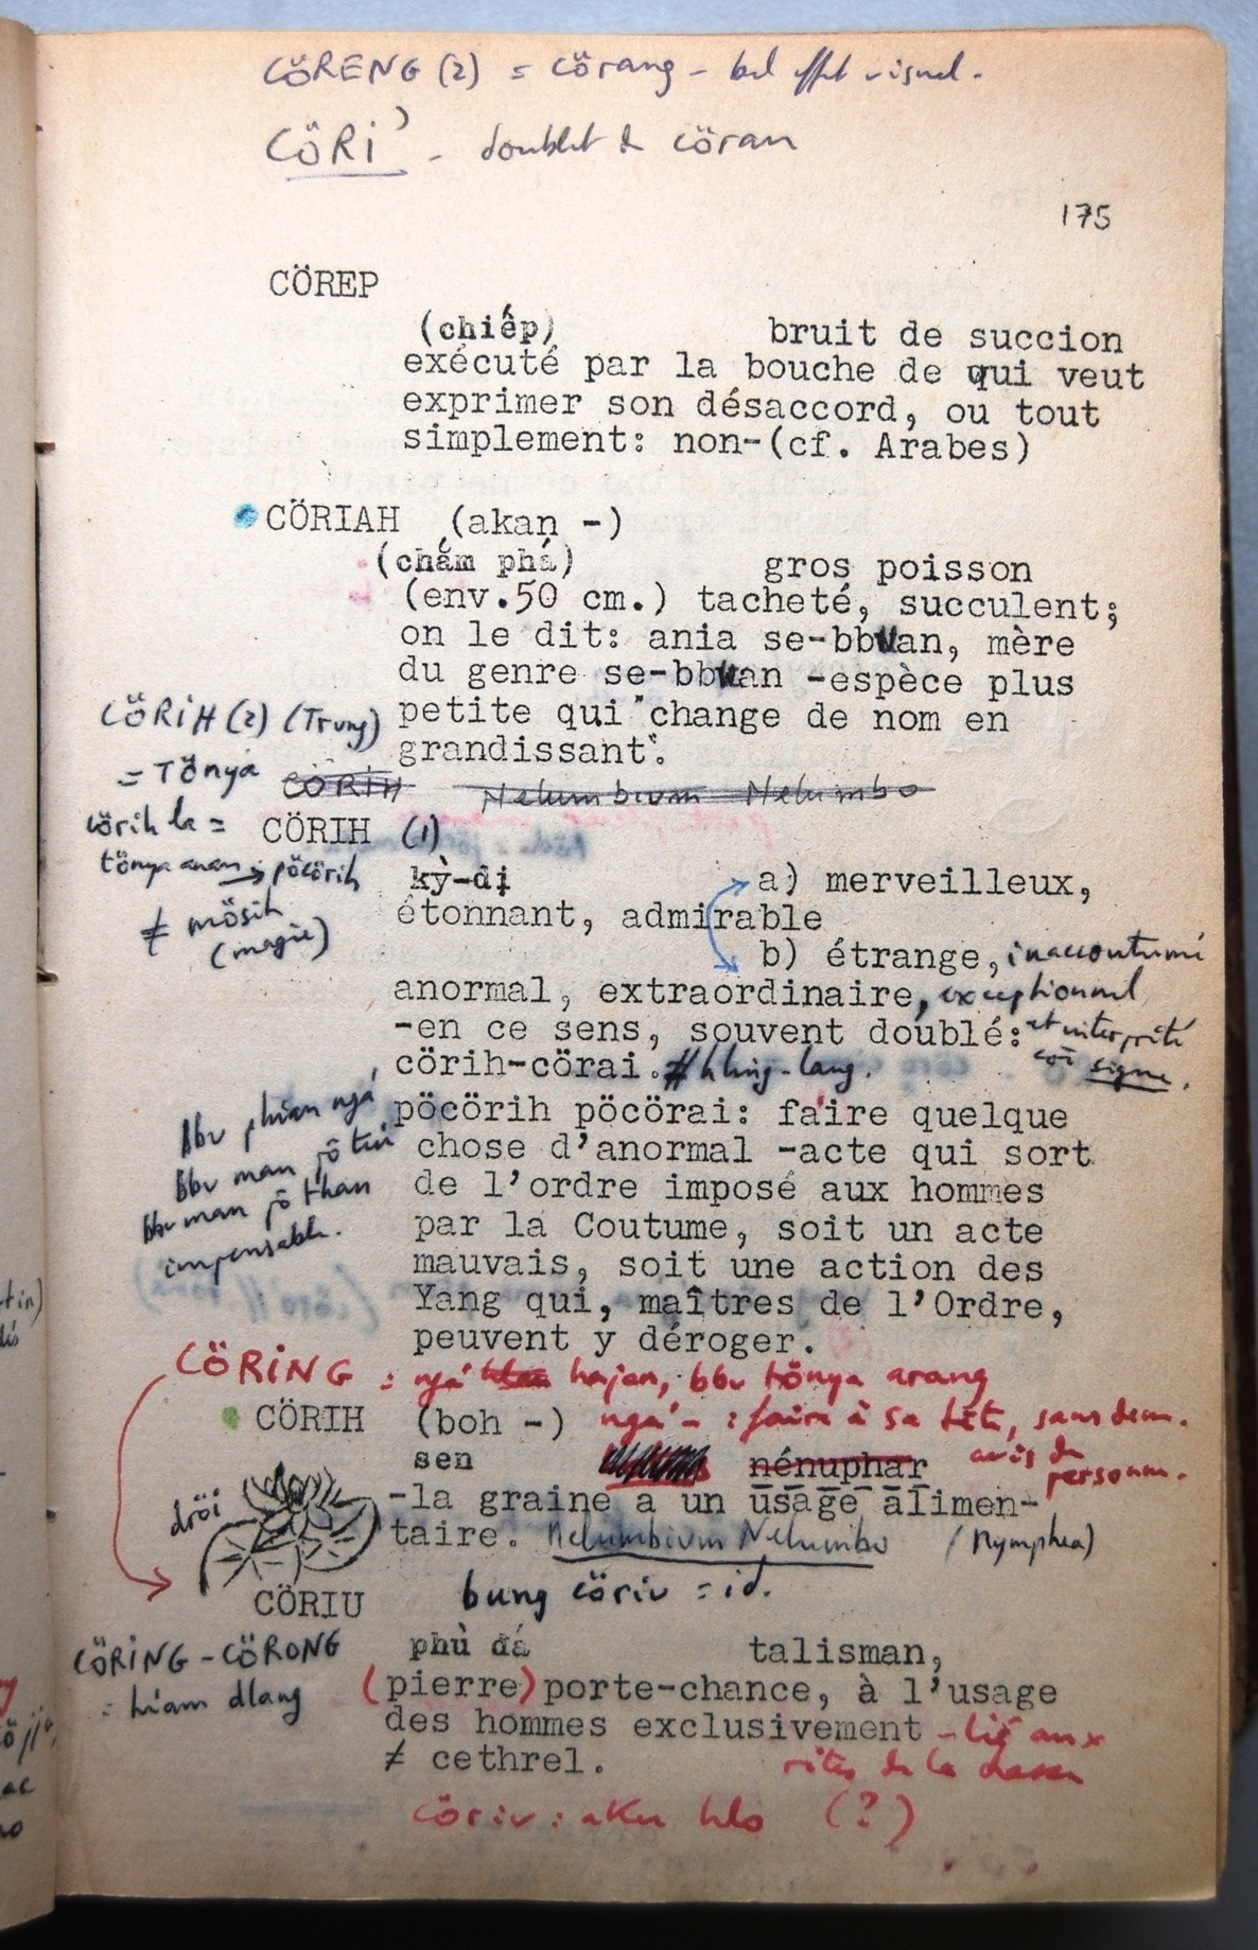 CÖRENG (2) = cörang - bel effet visuel.
CÖRI' - doublet de cöran
175
CÖREP
(chiếp) bruit de succion
exécuté par la bouche de qui veut
exprimer son désaccord, ou tout
simplement: non-(cf. Arabes)
CÖRIAH (akan -)
(chấm phá) gros poisson
(env.50 cm.) tacheté, succulent;
on le dit: ania se-bbuan, mère
du genre se-bbuan -espèce plus
petite qui "change de nom en
grandissant".
CÖRIH (2) (Trung)
= Tönya
CÖRIH Nelumbium Nelumbo
cörih la =
tönya anan pöcörih
≠ mösih
(magie)
CÖRIH (1)
kỳ-dị a) merveilleux,
étonnant, admirable
b) étrange, inaccoutumé
anormal, extraordinaire, exceptionnel
-en ce sens, souvent doublé: et interprété
cörih-cörai. # hling-lang. signe.
pöcörih pöcörai: faire quelque
chose d'anormal -acte qui sort
de l'ordre imposé aux hommes
par la Coutume, soit un acte
mauvais, soit une action des
Yang qui, maîtres de l'Ordre,
peuvent y déroger.
bbu phian ngá
bbu man jö tui
bbu man jö than
impensable.
CÖRING : ngá hajan, bbu tönya arang
ngá - : faire à sa tête, sans dem.
avis de
personne.
CÖRIH (boh -)
sen nénuphar
-la graine a un usage alimen-
taire. Nelumbium Nelumbo (Nymphea)
dröi
CÖRIU bung cöriu = id.
phù đá talisman,
(pierre) porte-chance, à l'usage
des hommes exclusivement - lié aux
≠ cethrel. rites de la chasse
CÖRING - CÖRONG
= hiam dlang
cöriu : aku hlo (?)